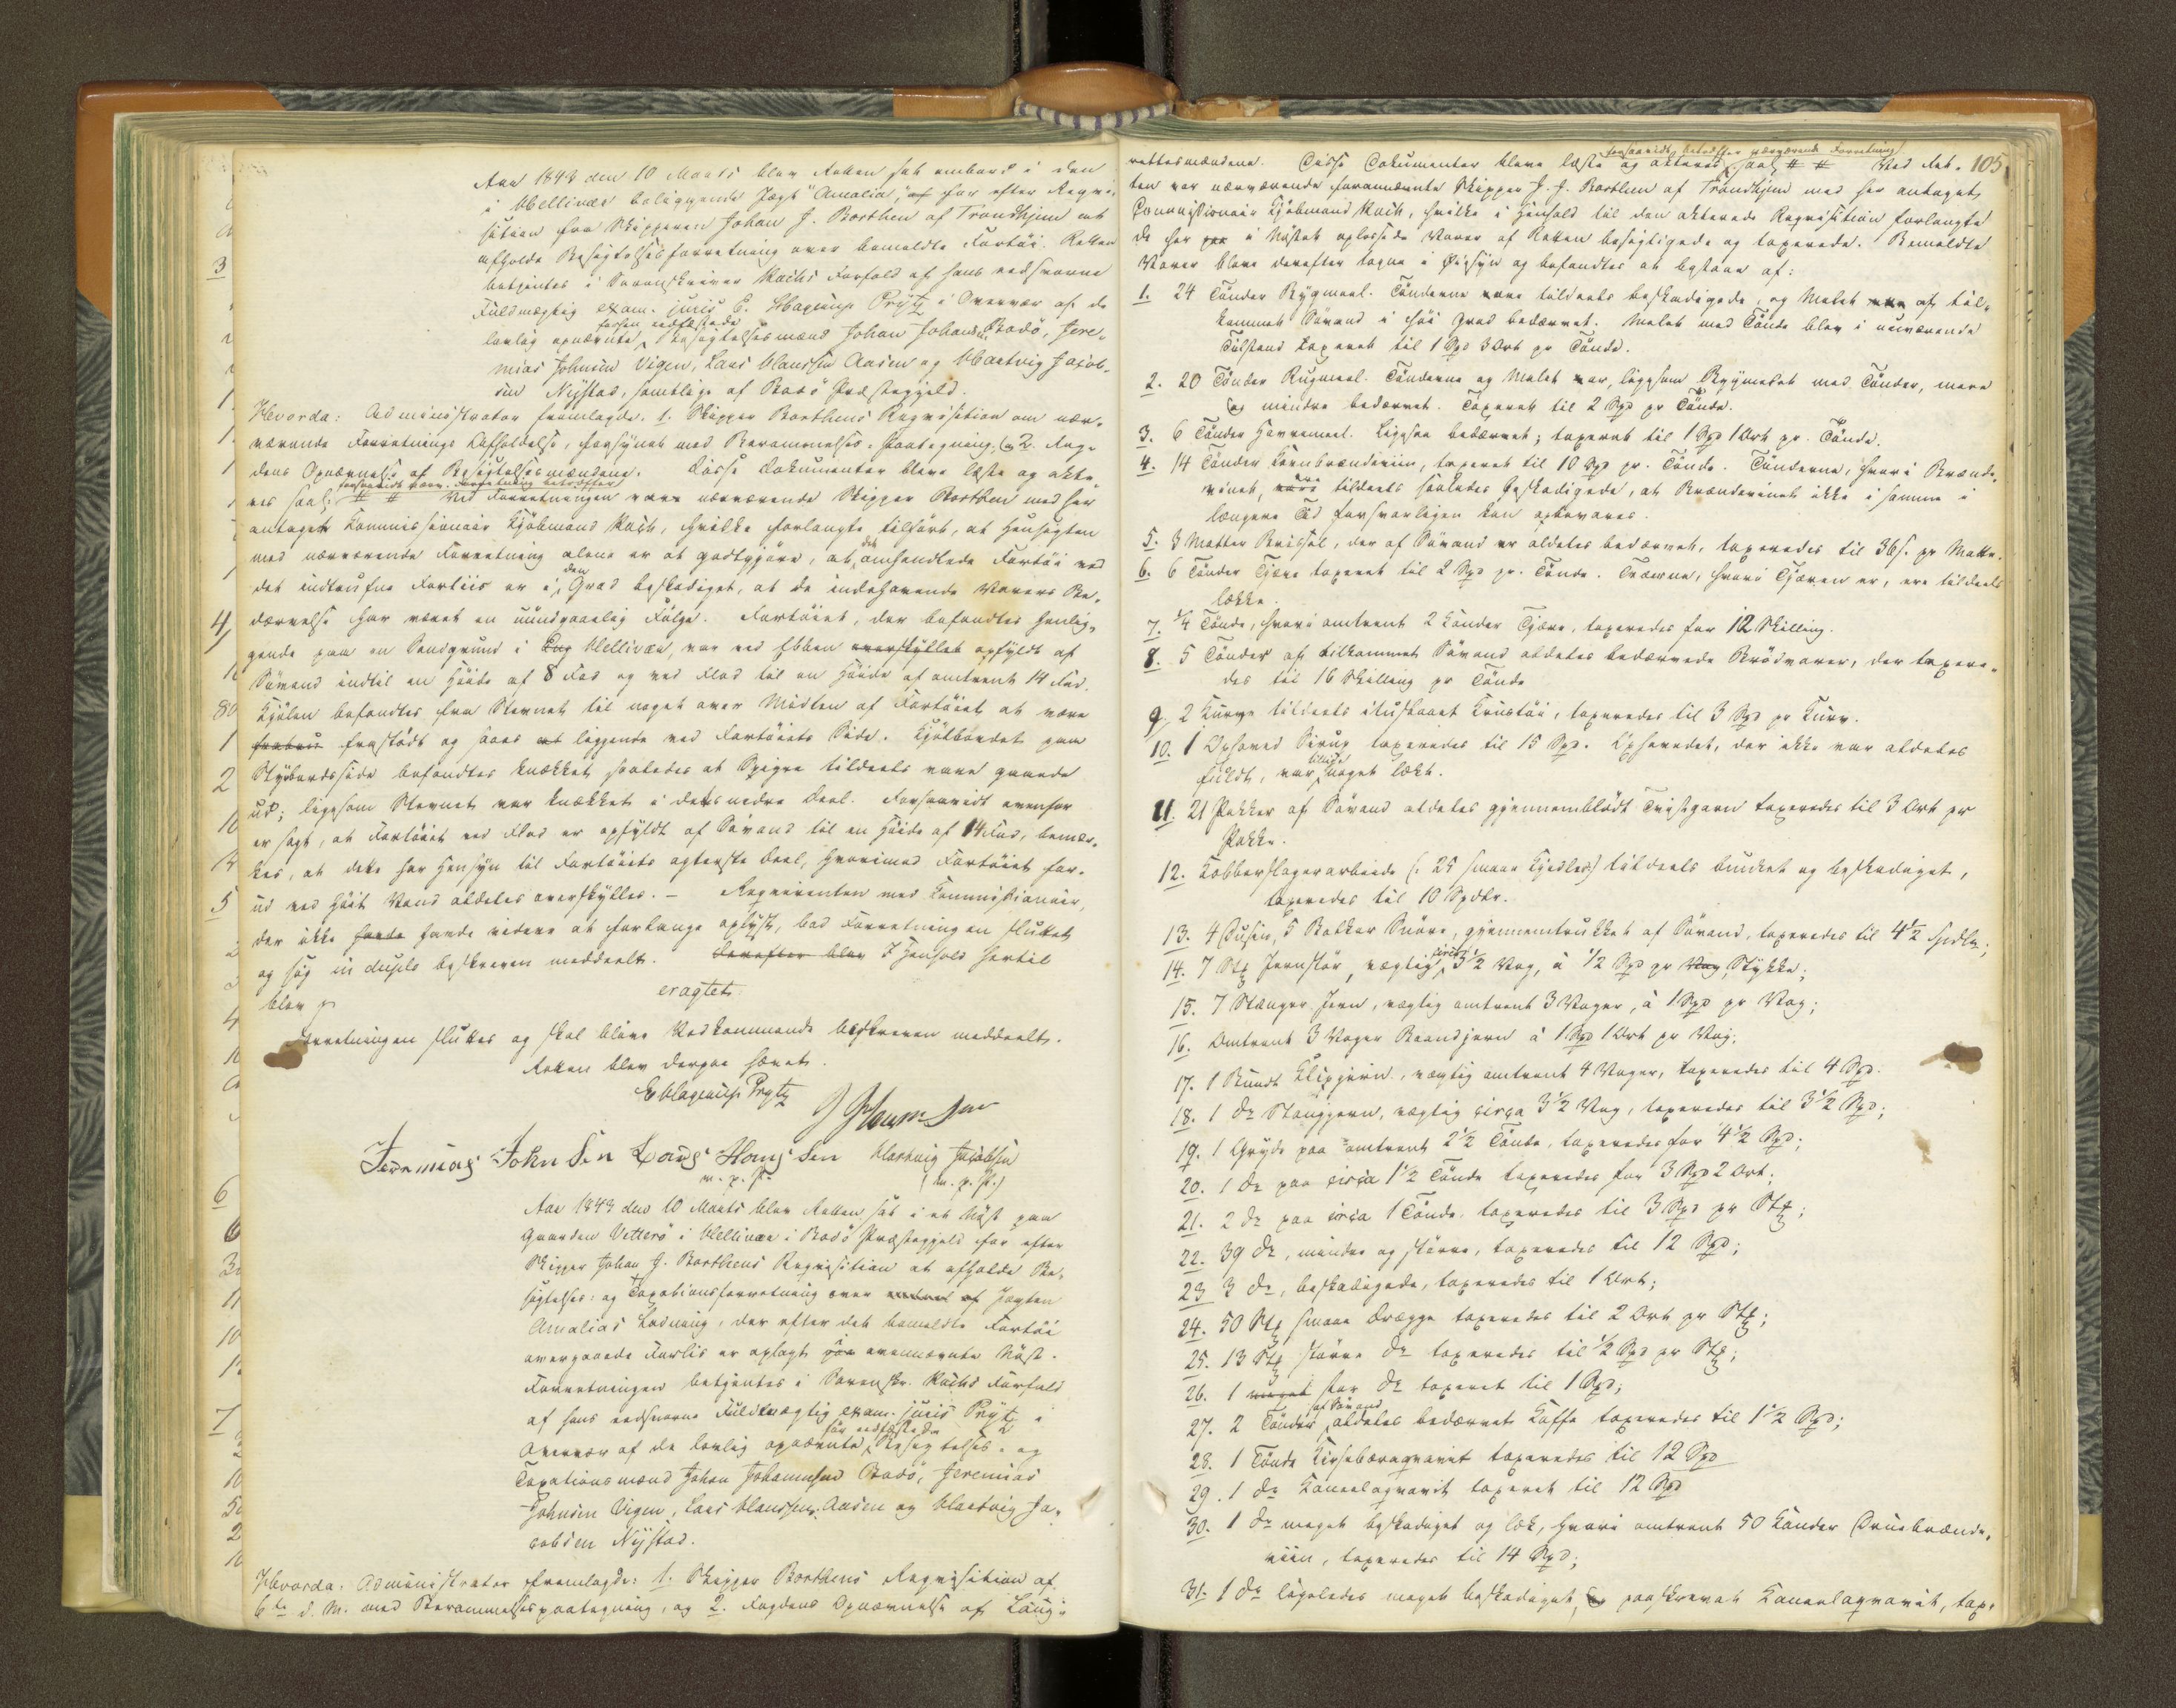 Aar 1843 den 10 Marts blev Retten sat ombord i den
i Hellivær beliggende Jagt "Amalia", for efter Reqvi-
sition fra Skipperen Johan J. Borthen af Trondhjem at
afholde Besigtelsesforretning over bemeldte Fartöi. Retten
betjentes i Sorenskriver Kochs Forfald af hans edsvorne
Fuldmægtig exam. juris E. Hagerup Prytz i Overvær af de
forhen edfæstede
lovlig opnævnte Besigtelsesmænd Johan Johans. Bodö, Jere-
mias Johnsen Vigen, Lars Hanssen Aasen og Hartvig Jacob-
sen Nystad, samtlige af Bodö Præstegjeld.
Hvorda: Administrator fremlagde. 1. Skipper Borthens Reqvisition om nær-
værende Forretnings Afholdelse, forsynet med Berammelses-Paategning, og 2. Fog-
dens Opnævnelse af Besigtelsesmændene. Disse Dokumenter bleve læste og akte-
forsaavidt nærv. Forretning betræffer
res saal: # # Ved Forretningen vare nærværende Skipper Borthen med her
antaget Kommissionair Kjöbmand Koch, hvilke forlangte tilfört, at Hensigten
med nærværende Forretning alene er at godtgjöre, at det omhandlede Fartöi ved
det indtrufne Forliis er i den Grad beskadiget, at de indehavende Varers Be-
dærvelse har været en uundgaaelig Fölge. Fartöiet, der befandtes henlig-
gende paa en Sandgrund i Hellivær, var ved Ebben overskyllet opfyldt af
Sövand indtil en Höide af 8 Fod og ved Flod til en Höide af omtrent 14 Fod.
Kjölen befandtes fra Stevnet til noget over Midten af Fartöiet at være
frastödt og saaes at liggende ved Fartöiets Side. Kjölbordet paa
Styrbordsside befandtes knækket saaledes at Spigre tildeels vare gaaede
ud; ligesom Stevnet var knækket i dets nedre Deel. Forsaavidt ovenfor
er sagt, at Fartöiet ved Flod er opfyldt af Sövand til en Höide af 14 Fod, bemær-
kes, at dette har Hensyn til Fartöiets agterste Deel, hvorimod Fartöiet for-
ud ved Höit Vand aldeles overskylles. — Reqvirenten med Kommissionair,
der ikke havde videre at forlange oplyst, bad Forretningen sluttet
og sig in duplo beskreven meddeelt. Derefter blev I Henhold hertil
blev
eragtet
Forretningen sluttes og skal blive Vedkommende beskreven meddeelt.
Retten blev derpaa hævet.
E Hagerup Prytz
Jeremias Johnsen Lars Hansen Hartvig Jacobsen
m. p. P. (m. p. P.)
Aar 1843 den 10 Marts blev Retten sat i et Nöst paa
Gaarden Vetterö i Hellivær i Bodö Præstegjeld for efter
Skipper Johan J. Borthens Reqvisition at afholde Be-
sigtelses- og Taxationsforretning over af Jagten
Amalias Ladning, der efter det bemeldte Fartöi
overgaaede Forlis er oplagt i ovennævnte Nöst.
Forretningen betjentes i Sorenskr. Kochs Forfald
af hans edsvorne Fuldmægtig exam. juris Prytz i
för edfæstede
Overvær af de lovlig opnævnte Besigtelses- og
Taxationsmænd Johan Johannesen Bodö, Jeremias
Johnsen Vigen, Lars Hanssen Aasen og Hartvig Ja-
cobsen Nystad.
Hvorda: Administrator fremlagde: 1. Skipper Borthens Reqvisition af
6te d. M. med Berammelsespaategning, og 2. Fogdens Opnævnelse af Laug-
105
forsaavidt betræffer nærværende Forretning
rettesmændene. Disse Dokumenter bleve læste og akteret saal: # # Ved Ret-
ten var nærværende fornævnte Skipper J. J. Borthen af Trondhjem med her antaget
Commissionair Kjöbmand Koch, hvilke i Henhold til den akterede Reqvisition forlangte
de her i Nöstet oplossede Varer af Retten besigtigede og taxerede. Bemeldte
Varer bleve derefter tagne i Öiesyn og befandtes at bestaae af:
1. 24 Tönder Bygmeel. Tönderne vare tildeels beskadigede, og Melet af til-
kommet Sövand i höi Grad bedærvet. Melet med Tönde blev i nuværende
Tilstand taxeret til 1 Spd 3 Ort pr Tönde.
2. 20 Tönder Rugmeel. Tönderne og Melet var, ligesom Bygmelet med Tönder, mere
og mindre bedærvet. Taxeret til 2 Spd pr Tönde.
3. 6 Tönder Havremeel. Ligesaa bedærvet; taxeret til 1 Spd 1 Ort pr. Tönde.
4. 14 Tönder Kornbrændeviin, taxeret til 10 Spd pr. Tönde. Tönderne, hvori Brænde-
vinet, ere tildeels saaledes beskadigede, at Brændevinet ikke i samme i
længere Tid forsvarligen kan opbevares.
5. 3 Matter Brissel, der af Sövand er aldeles bedærvet, taxeredes til 36 s. pr Matte.
6. 6 Tönder Tjære taxeret til 2 Spd pr. Tönde. Træerne, hvori Tjæren er, ere tildeels
lække.
7. 1/4 Tönde, hvori omtrent 2 Kander Tjære, taxeredes for 12 Skilling.
8. 5 Tönder af tilkommet Sövand aldeles bedærvede Brödvarer, der taxere-
des til 16 Skilling pr Tönde
9. 2 Kurve tildeels itustödt Kruustöi, taxeredes til 3 Spd pr Kurv.
10. 1 Oxhoved Sirup taxeredes til 15 Spd. Oxhovedet, der ikke var aldeles
tillige
fuldt, var noget lækt.
11. 21 Pakker af Sövand aldeles gjennemblödt Tvistgarn taxeredes til 3 Ort pr
Pakke.
12. Kobberslagerarbeide (: 25 smaae Kjedler) tildeels bunket og beskadiget,
taxeredes til 10 Spdlr.
13. 4 Dusin, 5 Bakker Snöre, gjennemtrukket af Sövand, taxeredes til 4 1/2 Spdlr.;
14. 7 Stk Jernstör, vægtig circa 3 1/2 Vog, à 1/2 Spd pr Vog Stykke;
15. 7 Stænger Jern, vægtig omtrent 3 Voger, à 1 Spd pr Vog;
16. Omtrent 3 Voger Baandjern à 1 Spd 1 Ort pr Vog;
17. 1 Bundt Klipjern, vægtig omtrent 4 Voger, taxeredes til 4 Spd.
18. 1 do Stangjern, vægtig circa 3 1/2 Vog, taxeredes til 3 1/2 Spd;
19. 1 Gryde paa omtrent 2 1/2 Tönde, taxeredes for 4 1/2 Spd;
20. 1 do paa circa 1 1/2 Tönde taxeredes for 3 Spd 2 Ort;
21. 2 do paa circa 1 Tönde, taxeredes til 3 Spd pr Stk;
22. 39 do, mindre og större, taxeredes til 12 Spd;
23 3 do, beskadigede, taxeredes til 1 Ort;
24. 50 Stk smaae Drægge taxeredes til 2 Ort pr Stk;
25. 13 Stk större do taxeredes til 1/2 Spd pr Stk;
26. 1 meget stor do taxeret til 1 Spd;
af Sövand
27. 2 Tönder aldeles bedærvet Kaffe taxeredes til 1 1/2 Spd;
28. 1 Tönde Kirsebæraqvavit taxeredes til 12 Spd
29. 1 do Kaneelaqvavit taxeret til 12 Spd
30. 1 do meget beskadiget og læk, hvori omtrent 50 Kander Druebrænde-
viin, taxeredes til 14 Spd;
31. 1 do ligeledes meget beskadiget, paaskrevet Kaneelaqvavit, tax-